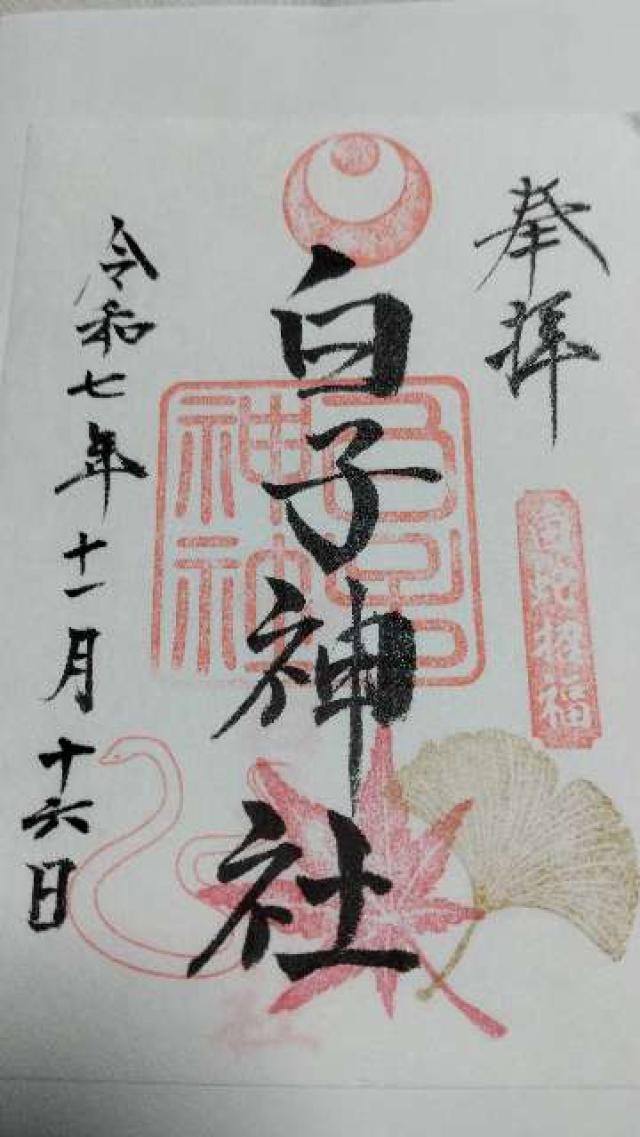 奉拝
白蛇招福
白子神社
令和七年十一月十六日